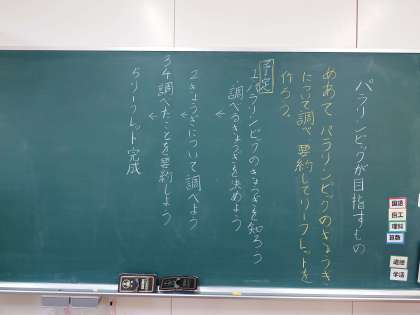 パラリンピックが目指すもの
めあて パラリンピックのきょうぎ
について調べ、要約してリーフレットを
作ろう。
予定
1 パラリンピックのきょうぎを知ろう
・調べるきょうぎを決めよう
↓
2 きょうぎについて調べよう
↓
3 4 調べたことを要約しよう
↓
5 リーフレット完成
国語
図工
理科
算数
道徳
学活